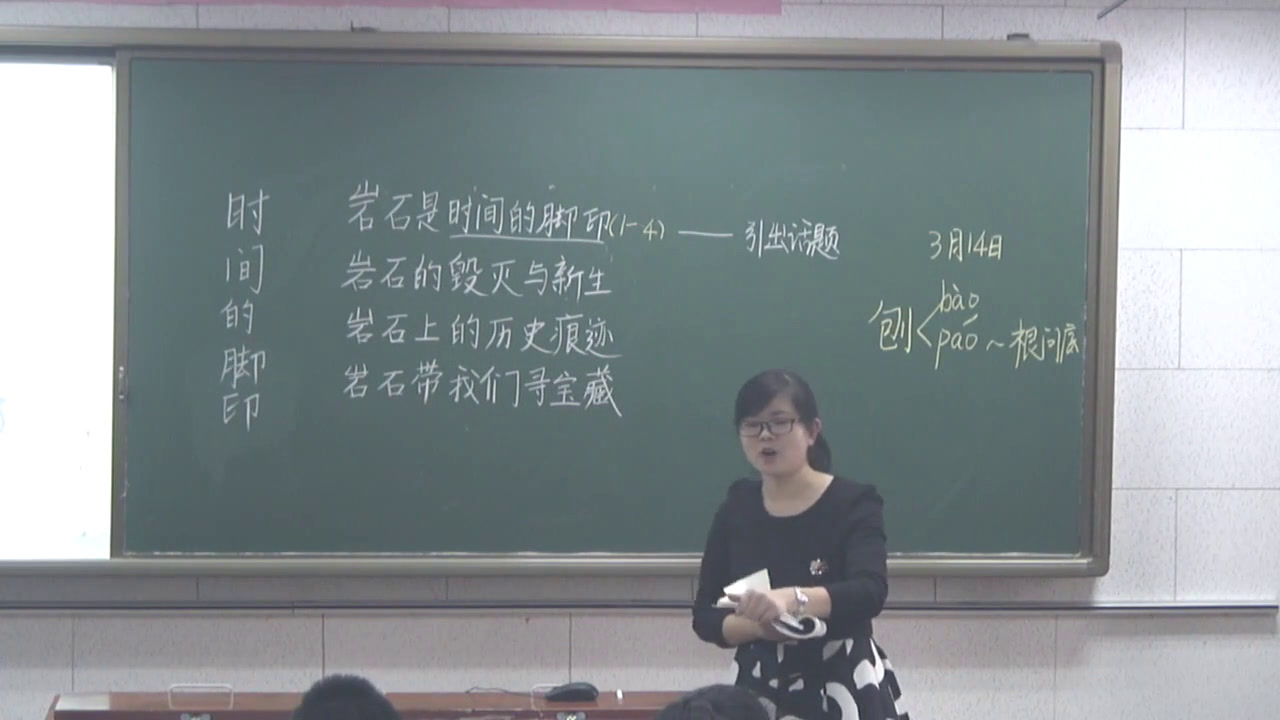 时间的脚印
岩石是时间的脚印(1-4)——引出话题
岩石的毁灭与新生
岩石上的历史痕迹
岩石带我们寻宝藏
3月14日
刨
bào
páo ~根问底